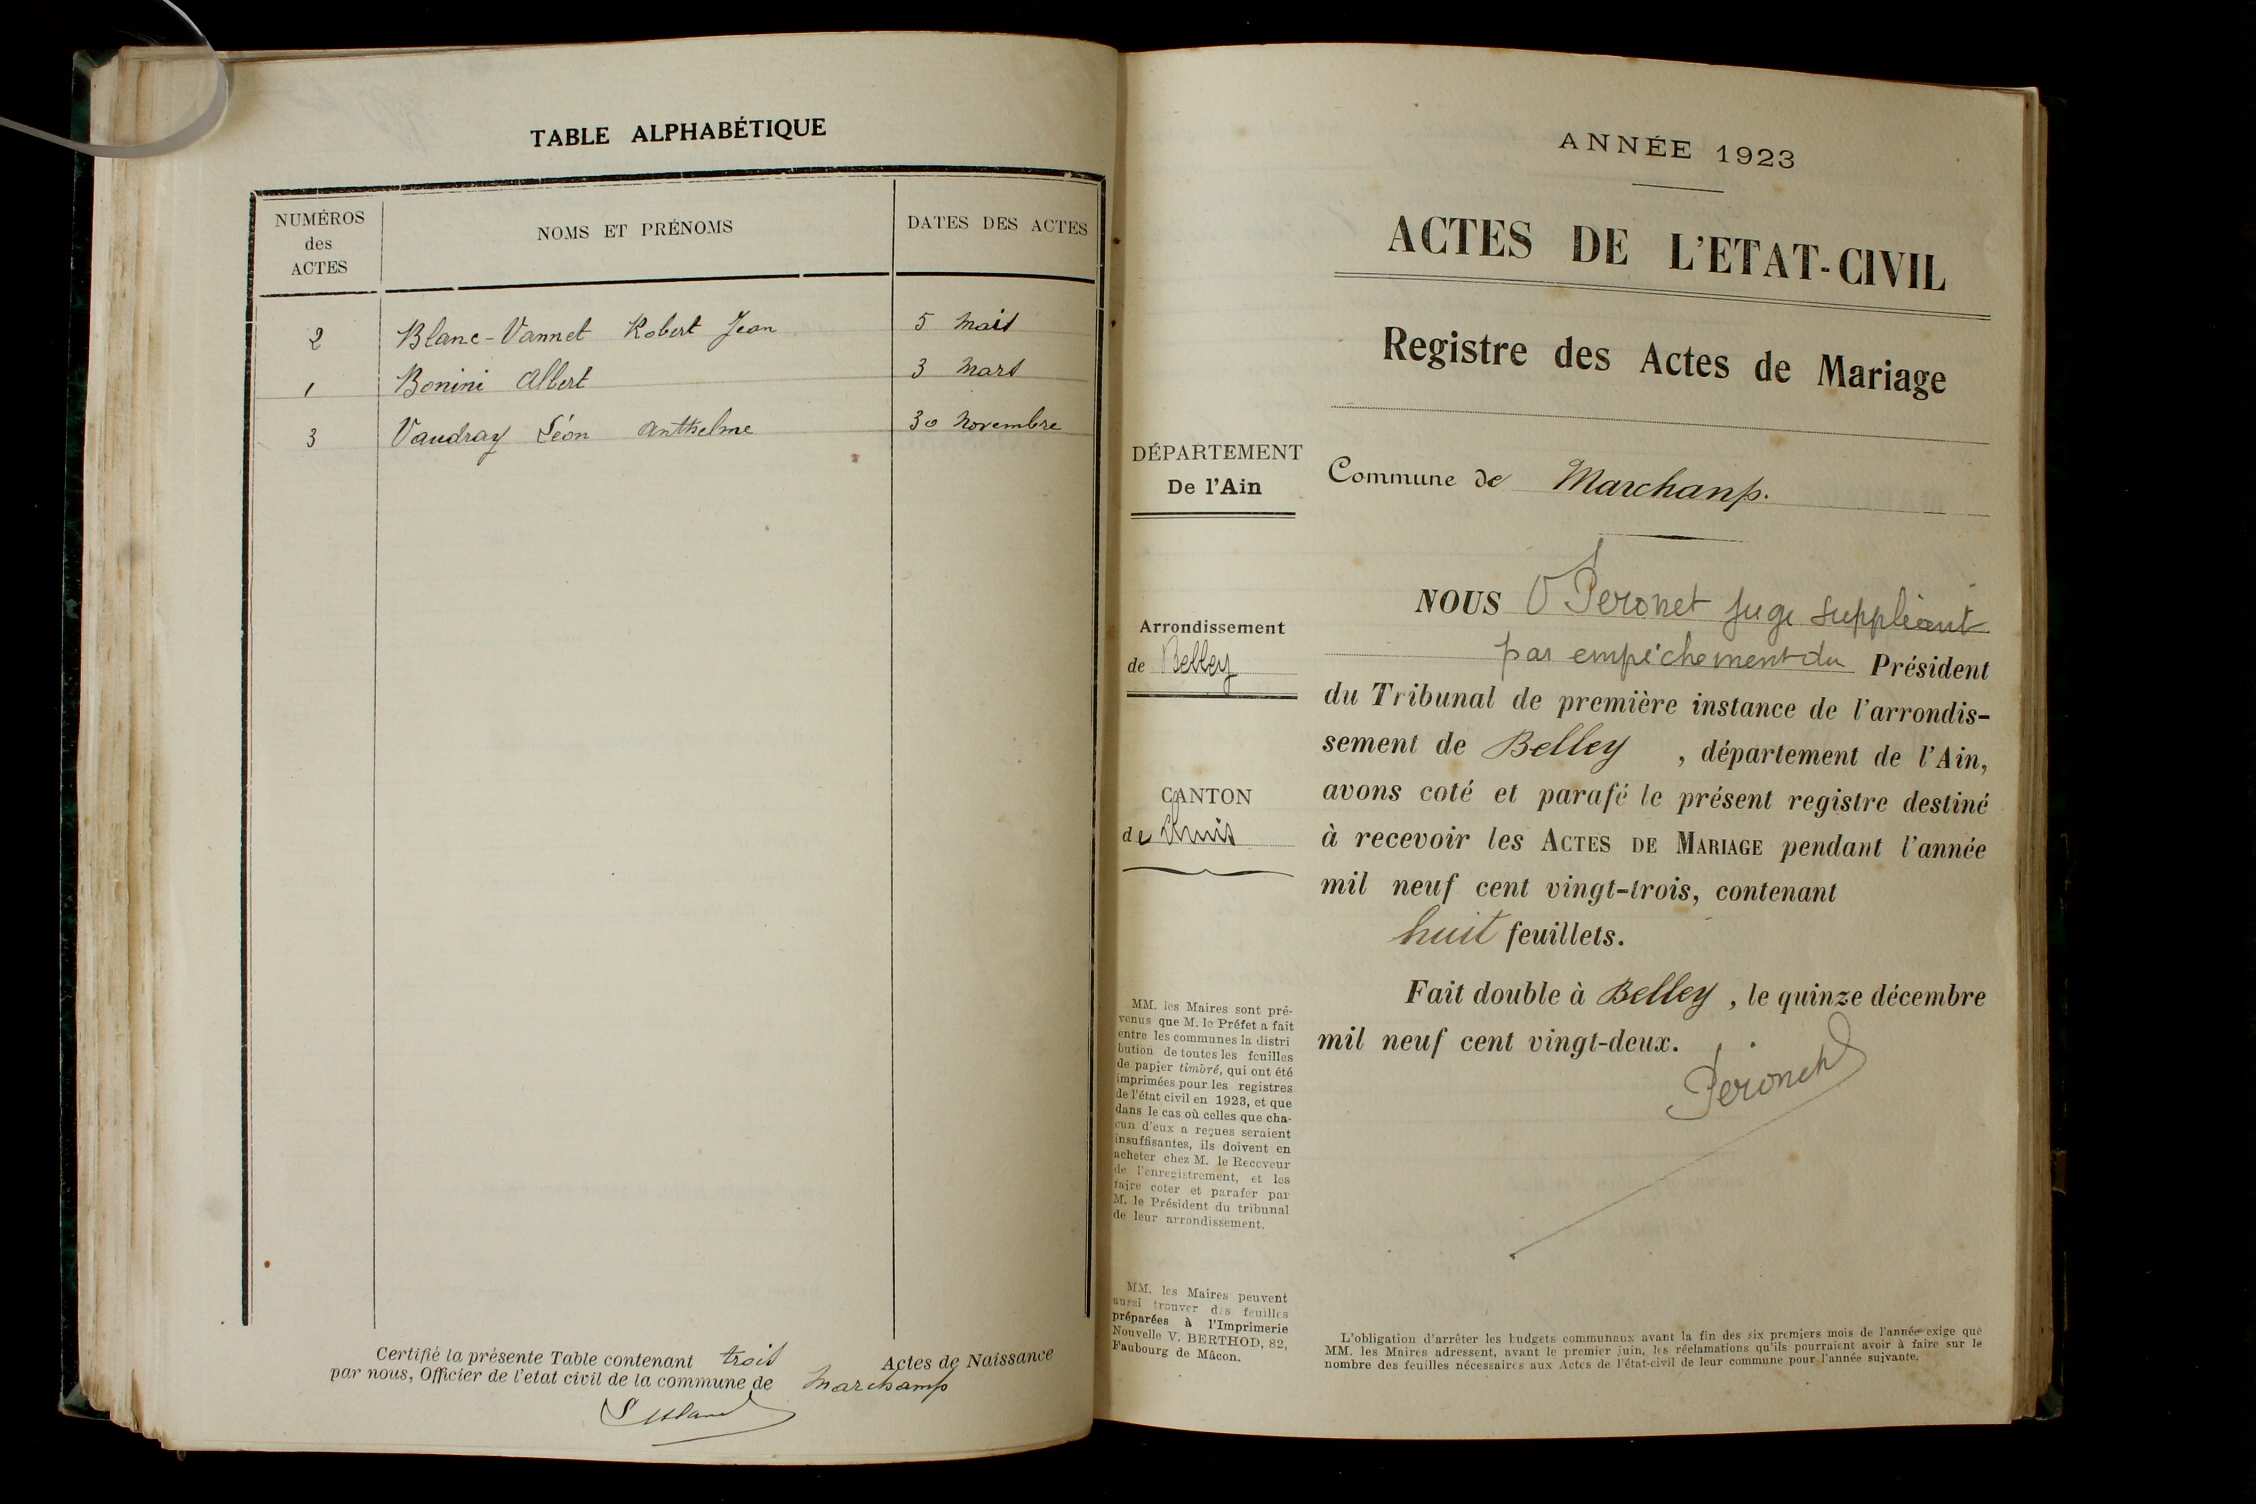 TABLE ALPHABÉTIQUE
NUMÉROS des ACTES
NOMS ET PRÉNOMS
DATES DES ACTES
2 Blanc-Vannet Robert Jean 5 Mars
1 Bonini Albert 3 Mars
3 Vaudray Léon Anthelme 30 Novembre
Certifié la présente Table contenant trois Actes de Naissance
par nous, Officier de l'etat civil de la commune de Marchamp
ANNÉE 1923
ACTES DE L'ETAT-CIVIL
Registre des Actes de Mariage
DÉPARTEMENT
De l'Ain
Arrondissement
de Belley
CANTON
de Lhuis
MM. les Maires sont pré-
venus que M. le Préfet a fait
entre les communes la distri
bution de toutes les feuilles
de papier timbré, qui ont été
imprimées pour les registres
de l'état civil en 1923, et que
dans le cas où celles que cha-
cun d'eux a reçues seraient
insuffisantes, ils doivent en
acheter chez M. le Receveur
de l'enregistrement, et les
faire coter et parafer par
M. le Président du tribunal
de leur arrondissement.
MM. les Maires peuvent
aussi trouver des feuilles
préparées à l'Imprimerie
Nouvelle V. BERTHOD, 82,
Faubourg de Mâcon.
Commune de Marchamp.
NOUS Peronet juge suppléant
par empêchement du Président
du Tribunal de première instance de l'arrondis-
sement de Belley , département de l'Ain,
avons coté et parafé le présent registre destiné
à recevoir les ACTES DE MARIAGE pendant l'année
mil neuf cent vingt-trois, contenant
huit feuillets.
Fait double à Belley , le quinze décembre
mil neuf cent vingt-deux.
Péronet
L'obligation d'arrêter les budgets communaux avant la fin des six premiers mois de l'année exige que
MM. les Maires adressent, avant le premier juin, les réclamations qu'ils pourraient avoir à faire sur le
nombre des feuilles nécessaires aux Actes de l'état-civil de leur commune pour l'année suivante.